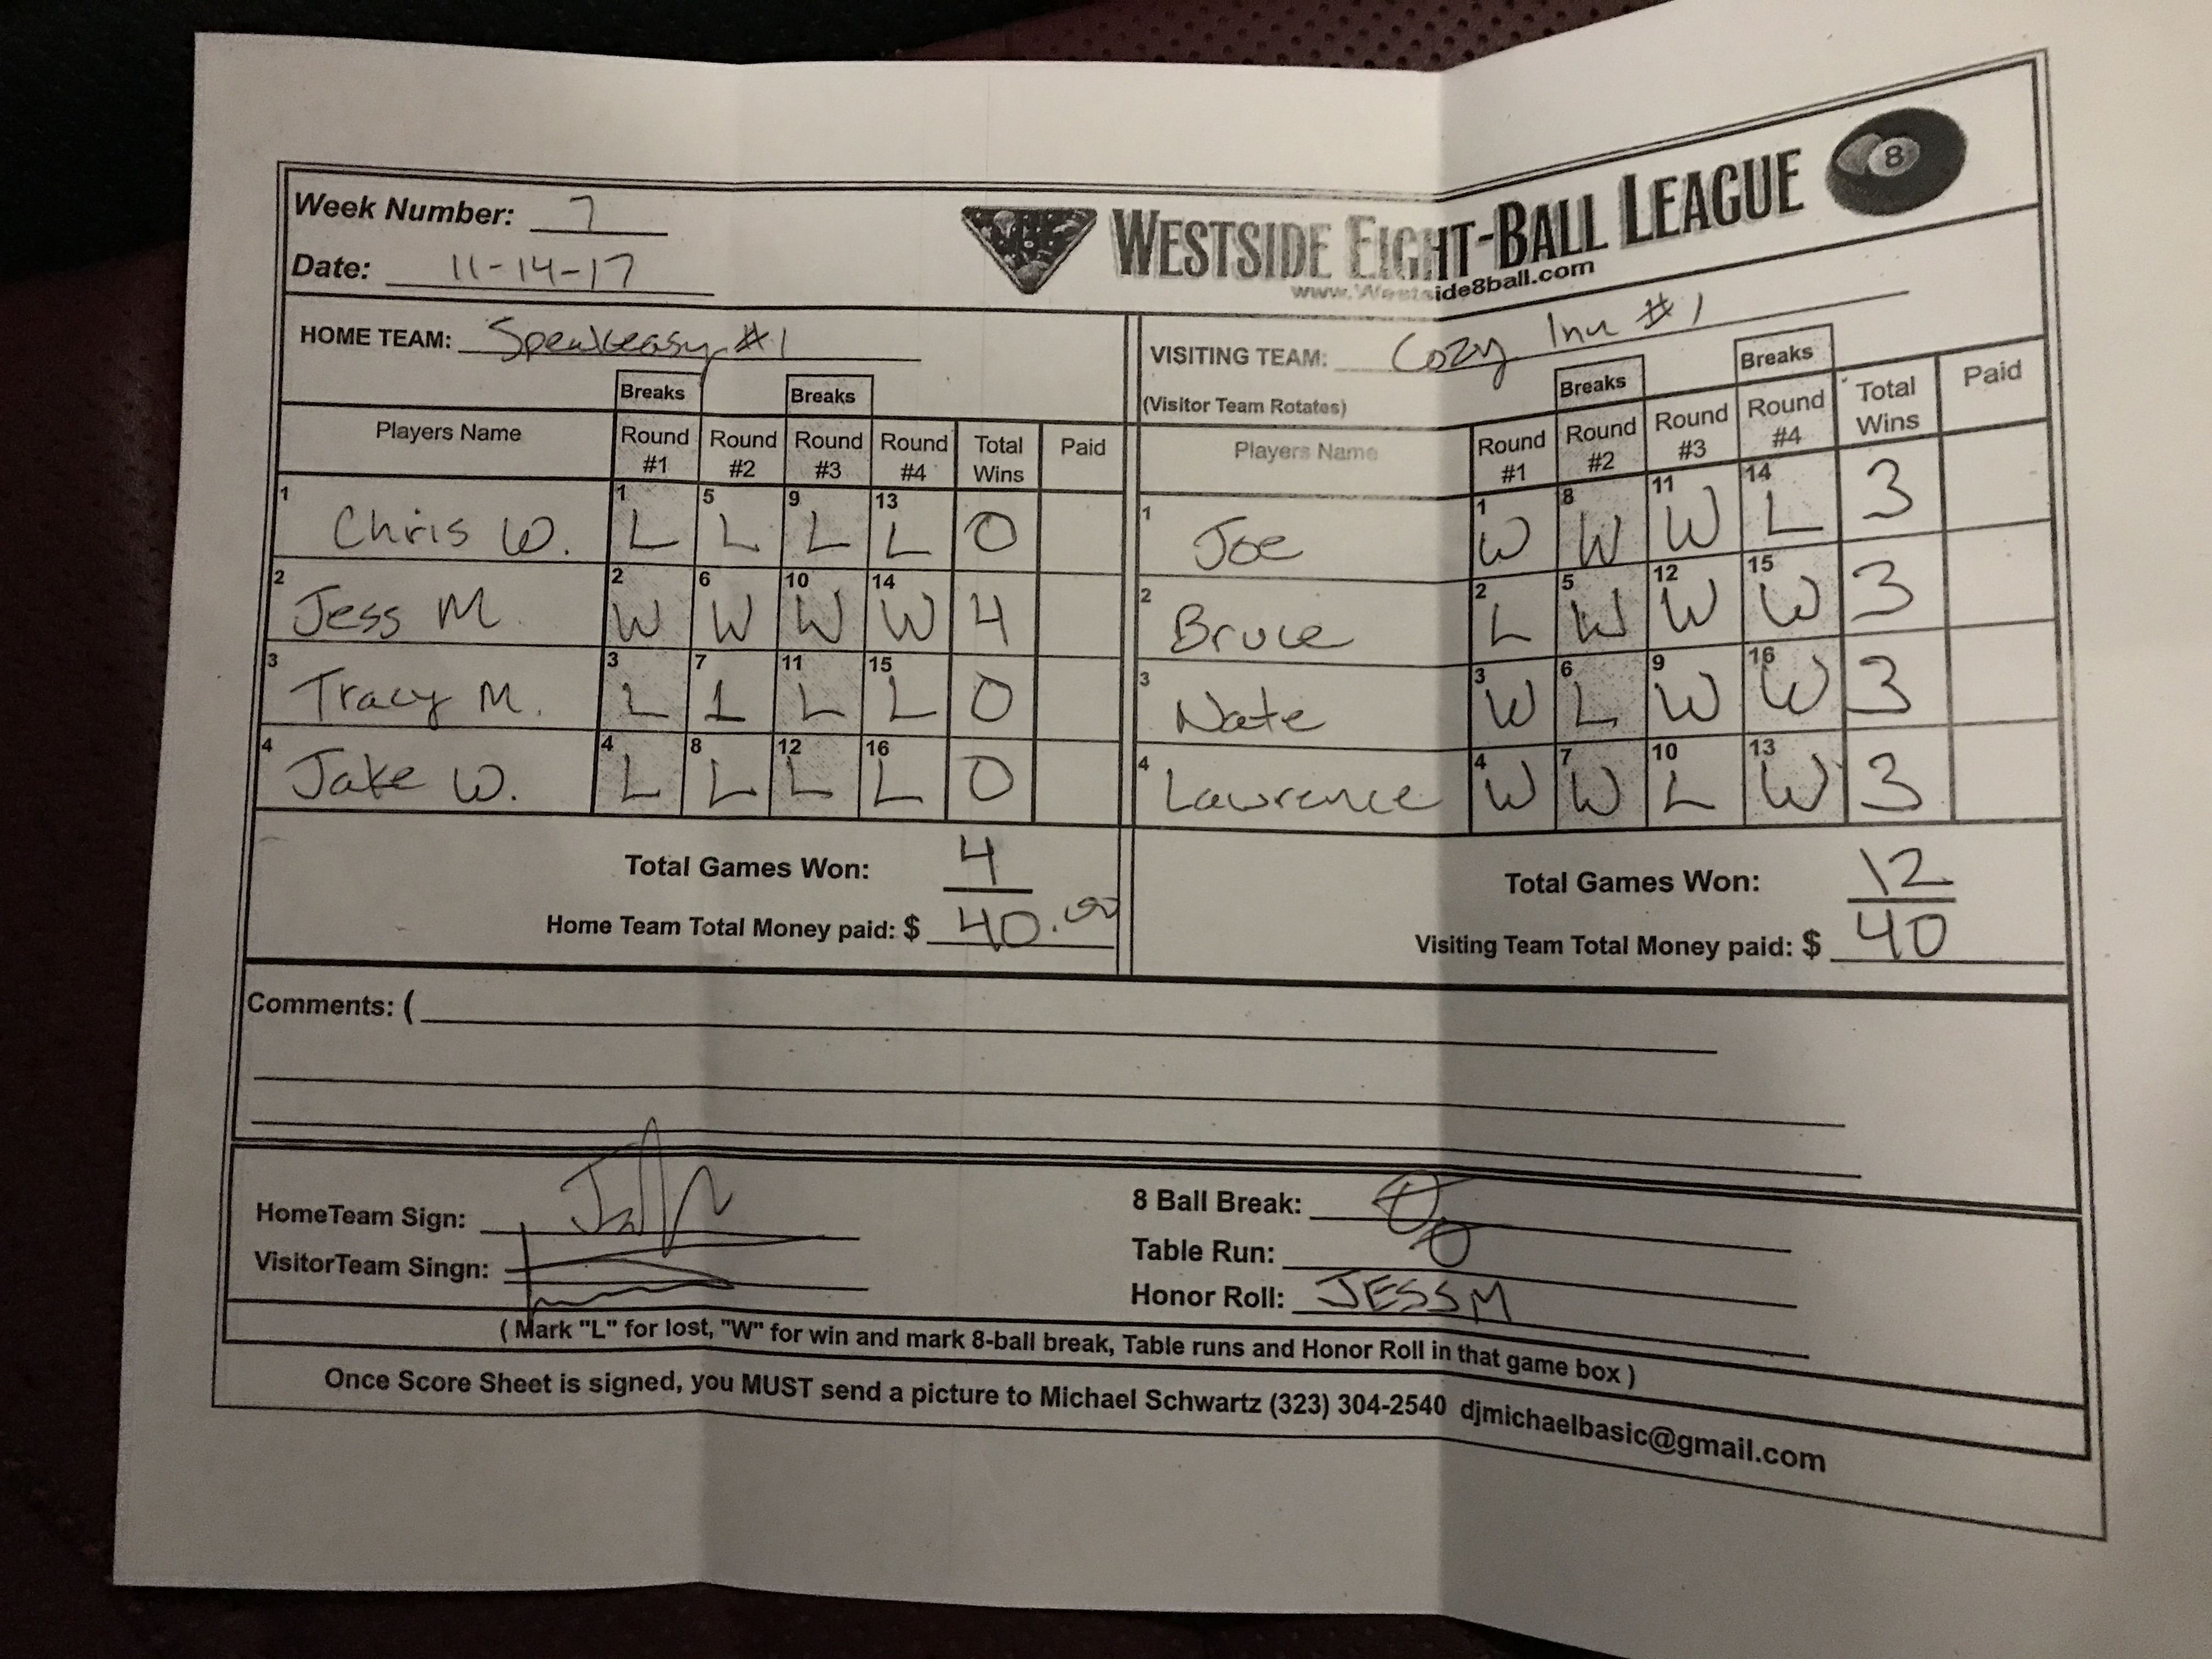 Week Number: 7
Date: 11-14-17
WESTSIDE EIGHT-BALL LEAGUE
8
www.Westside8ball.com
HOME TEAM: Speakeasy #1
VISITING TEAM: Cozy Inn #1
(Visitor Team Rotates)
Breaks Breaks
Players Name Round #1 Round #2 Round #3 Round #4 Total Wins Paid
1 Chris W. 1 L 5 L 9 L 13 L 0
2 Jess M. 2 W 6 W 10 W 14 W 4
3 Tracy M. 3 L 7 L 11 L 15 L 0
4 Jake W. 4 L 8 L 12 L 16 L 0
Total Games Won: 4
Home Team Total Money paid: $ 40.00
Breaks Breaks
Players Name Round #1 Round #2 Round #3 Round #4 Total Wins Paid
1 Joe 1 W 8 W 11 W 14 L 3
2 Bruce 2 L 5 W 12 W 15 W 3
3 Nate 3 W 6 L 9 W 16 W 3
4 Lawrence 4 W 7 W 10 L 13 W 3
Total Games Won: 12
Visiting Team Total Money paid: $ 40
Comments: (
HomeTeam Sign:
VisitorTeam Singn:
8 Ball Break:
Table Run:
Honor Roll: JESS M
( Mark "L" for lost, "W" for win and mark 8-ball break, Table runs and Honor Roll in that game box )
Once Score Sheet is signed, you MUST send a picture to Michael Schwartz (323) 304-2540 djmichaelbasic@gmail.com